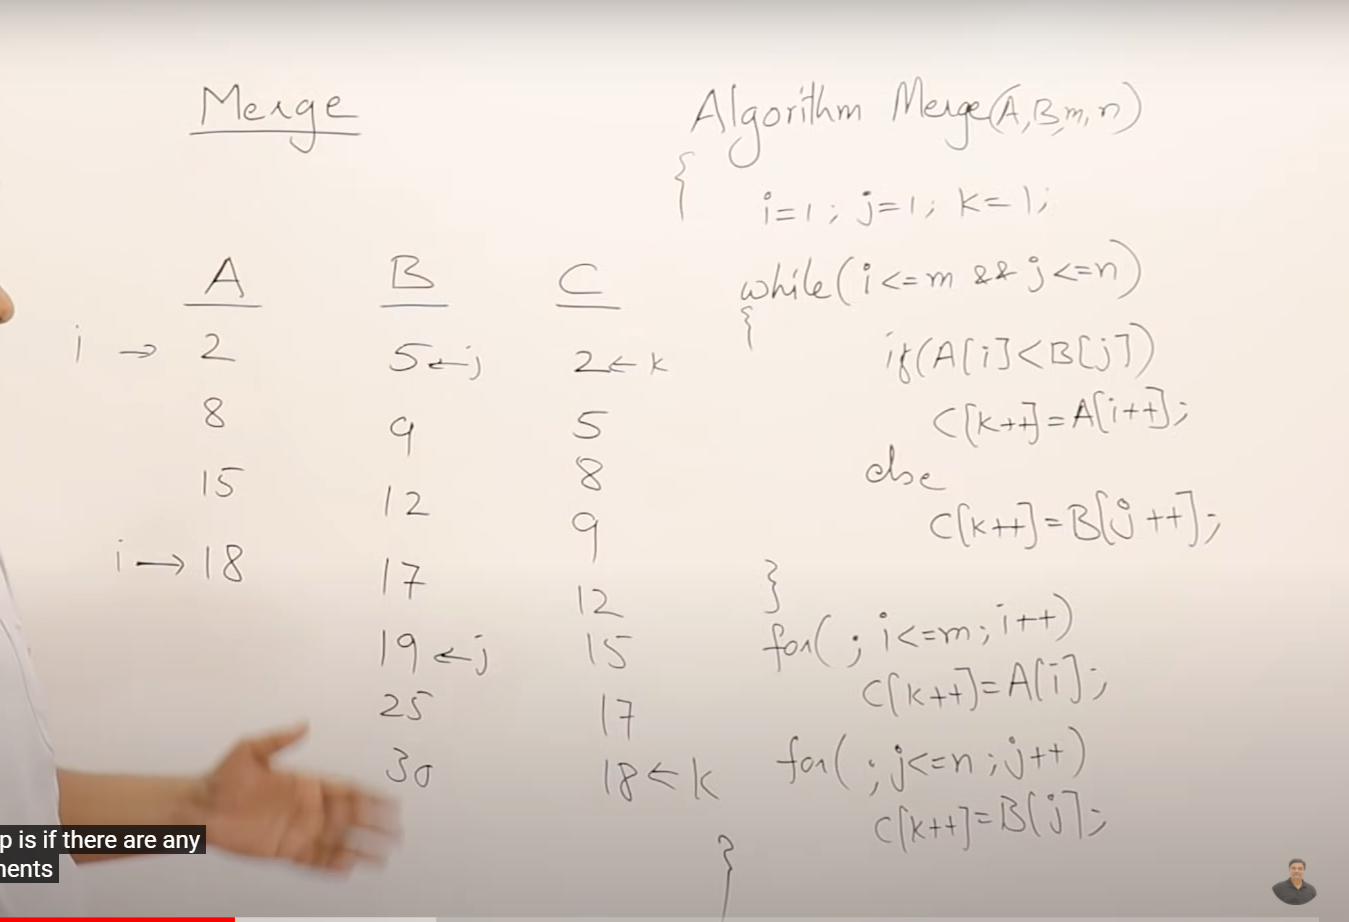 Merge
A B C
i → 2 5 ← j 2 ← k
8 9 5
15 12 8
i → 18 17 9
19 ← j 12
25 15
30 17
18 ← k
Algorithm Merge(A,B,m,n)
{
i=1; j=1; k=1;
while(i<=m && j<=n)
{
if(A[i]<B[j])
C[k++]=A[i++];
else
C[k++]=B[j++];
}
for(; i<=m; i++)
C[k++]=A[i];
for(; j<=n; j++)
C[k++]=B[j];
}
p is if there are any
nents